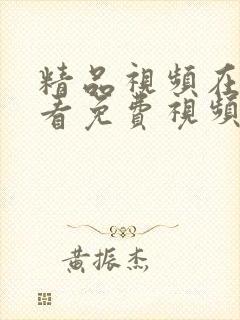 精品視頻在
看免費視頻
黄振杰